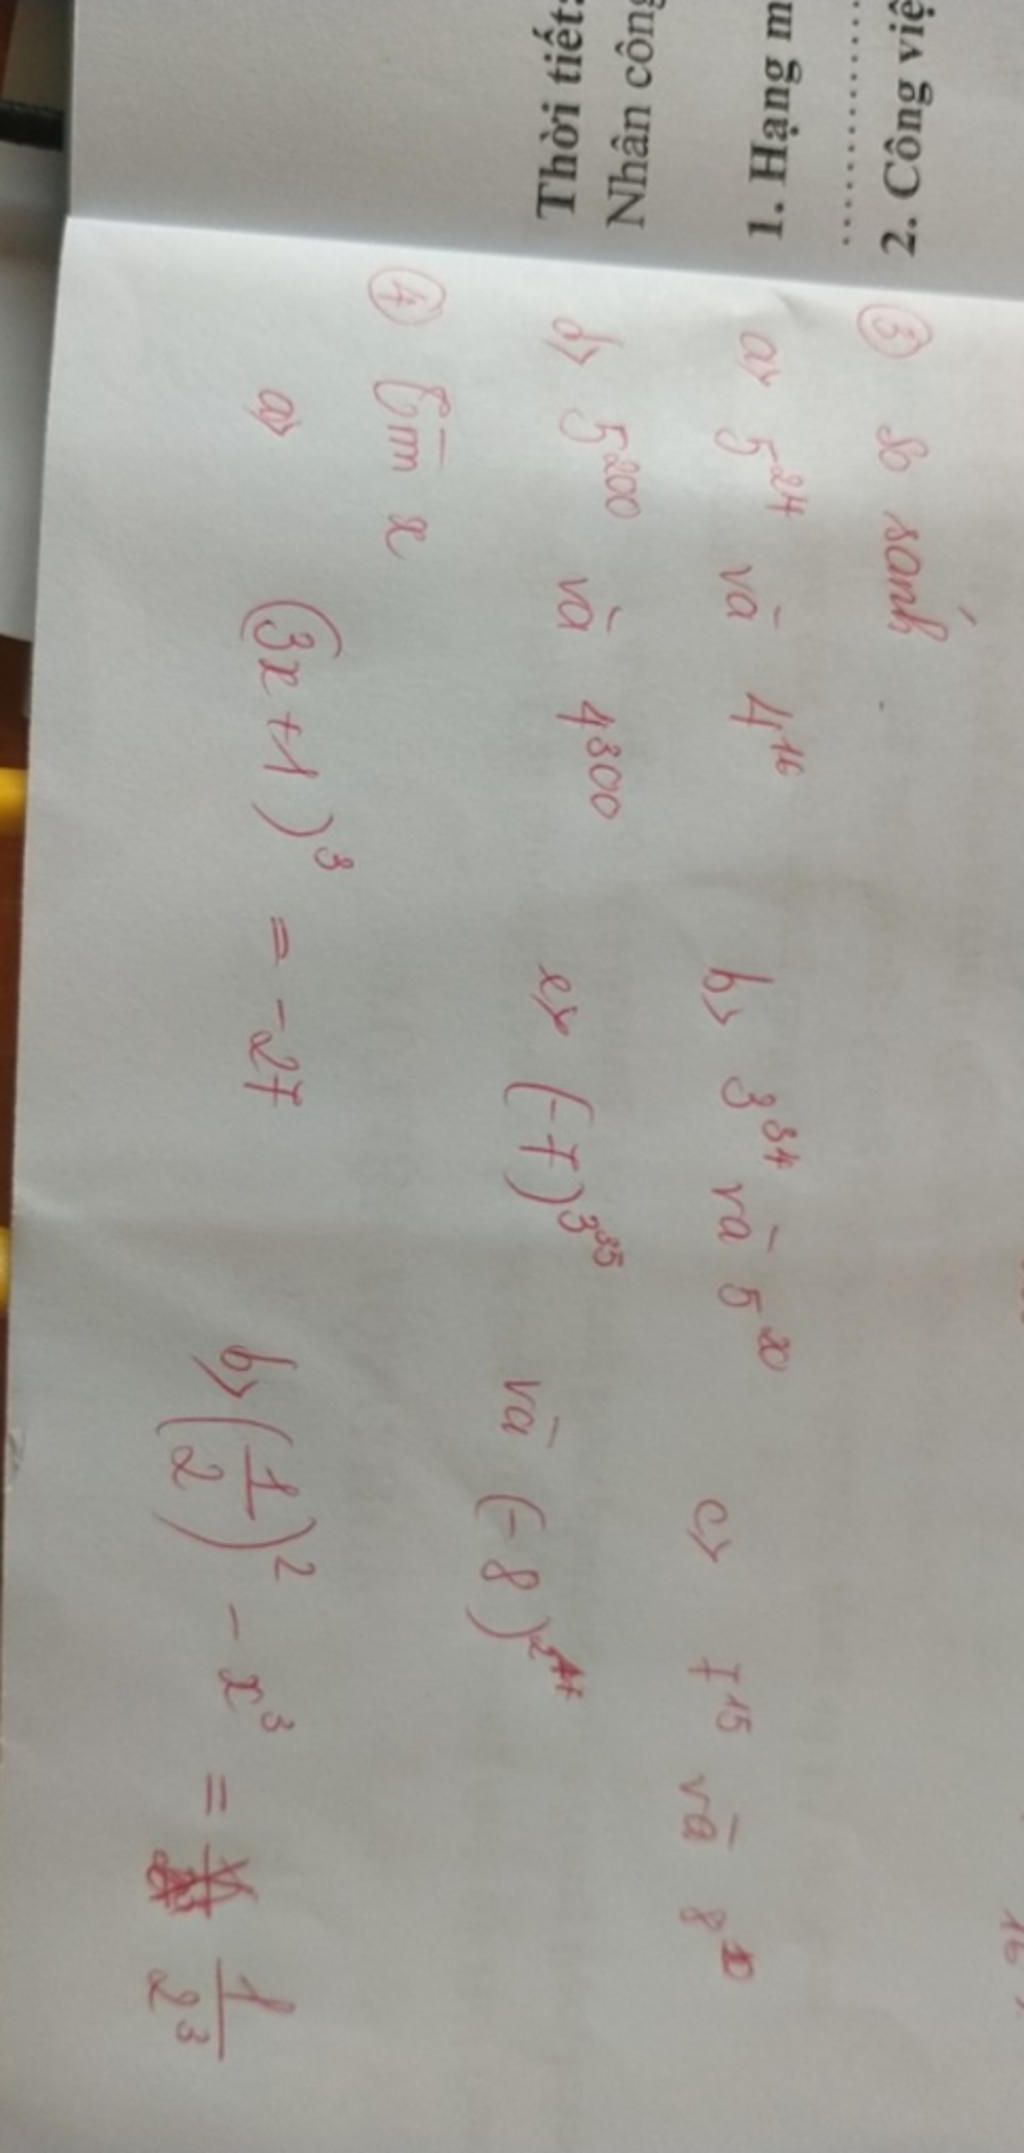 Thời tiết:
Nhân công
1. Hạng m
....................
2. Công việ
③ so sánh
a> 5²⁴ và 4¹⁶ b> 3³⁴ và 5²⁰ c> 7¹⁵ và 8¹⁰
d> 5²⁰⁰ và 4³⁰⁰ e> (-7)³³⁵ và
④ Tìm x
a> (3x+1)³ = -27 b> (1/2)² - x³ = 1/2³
16